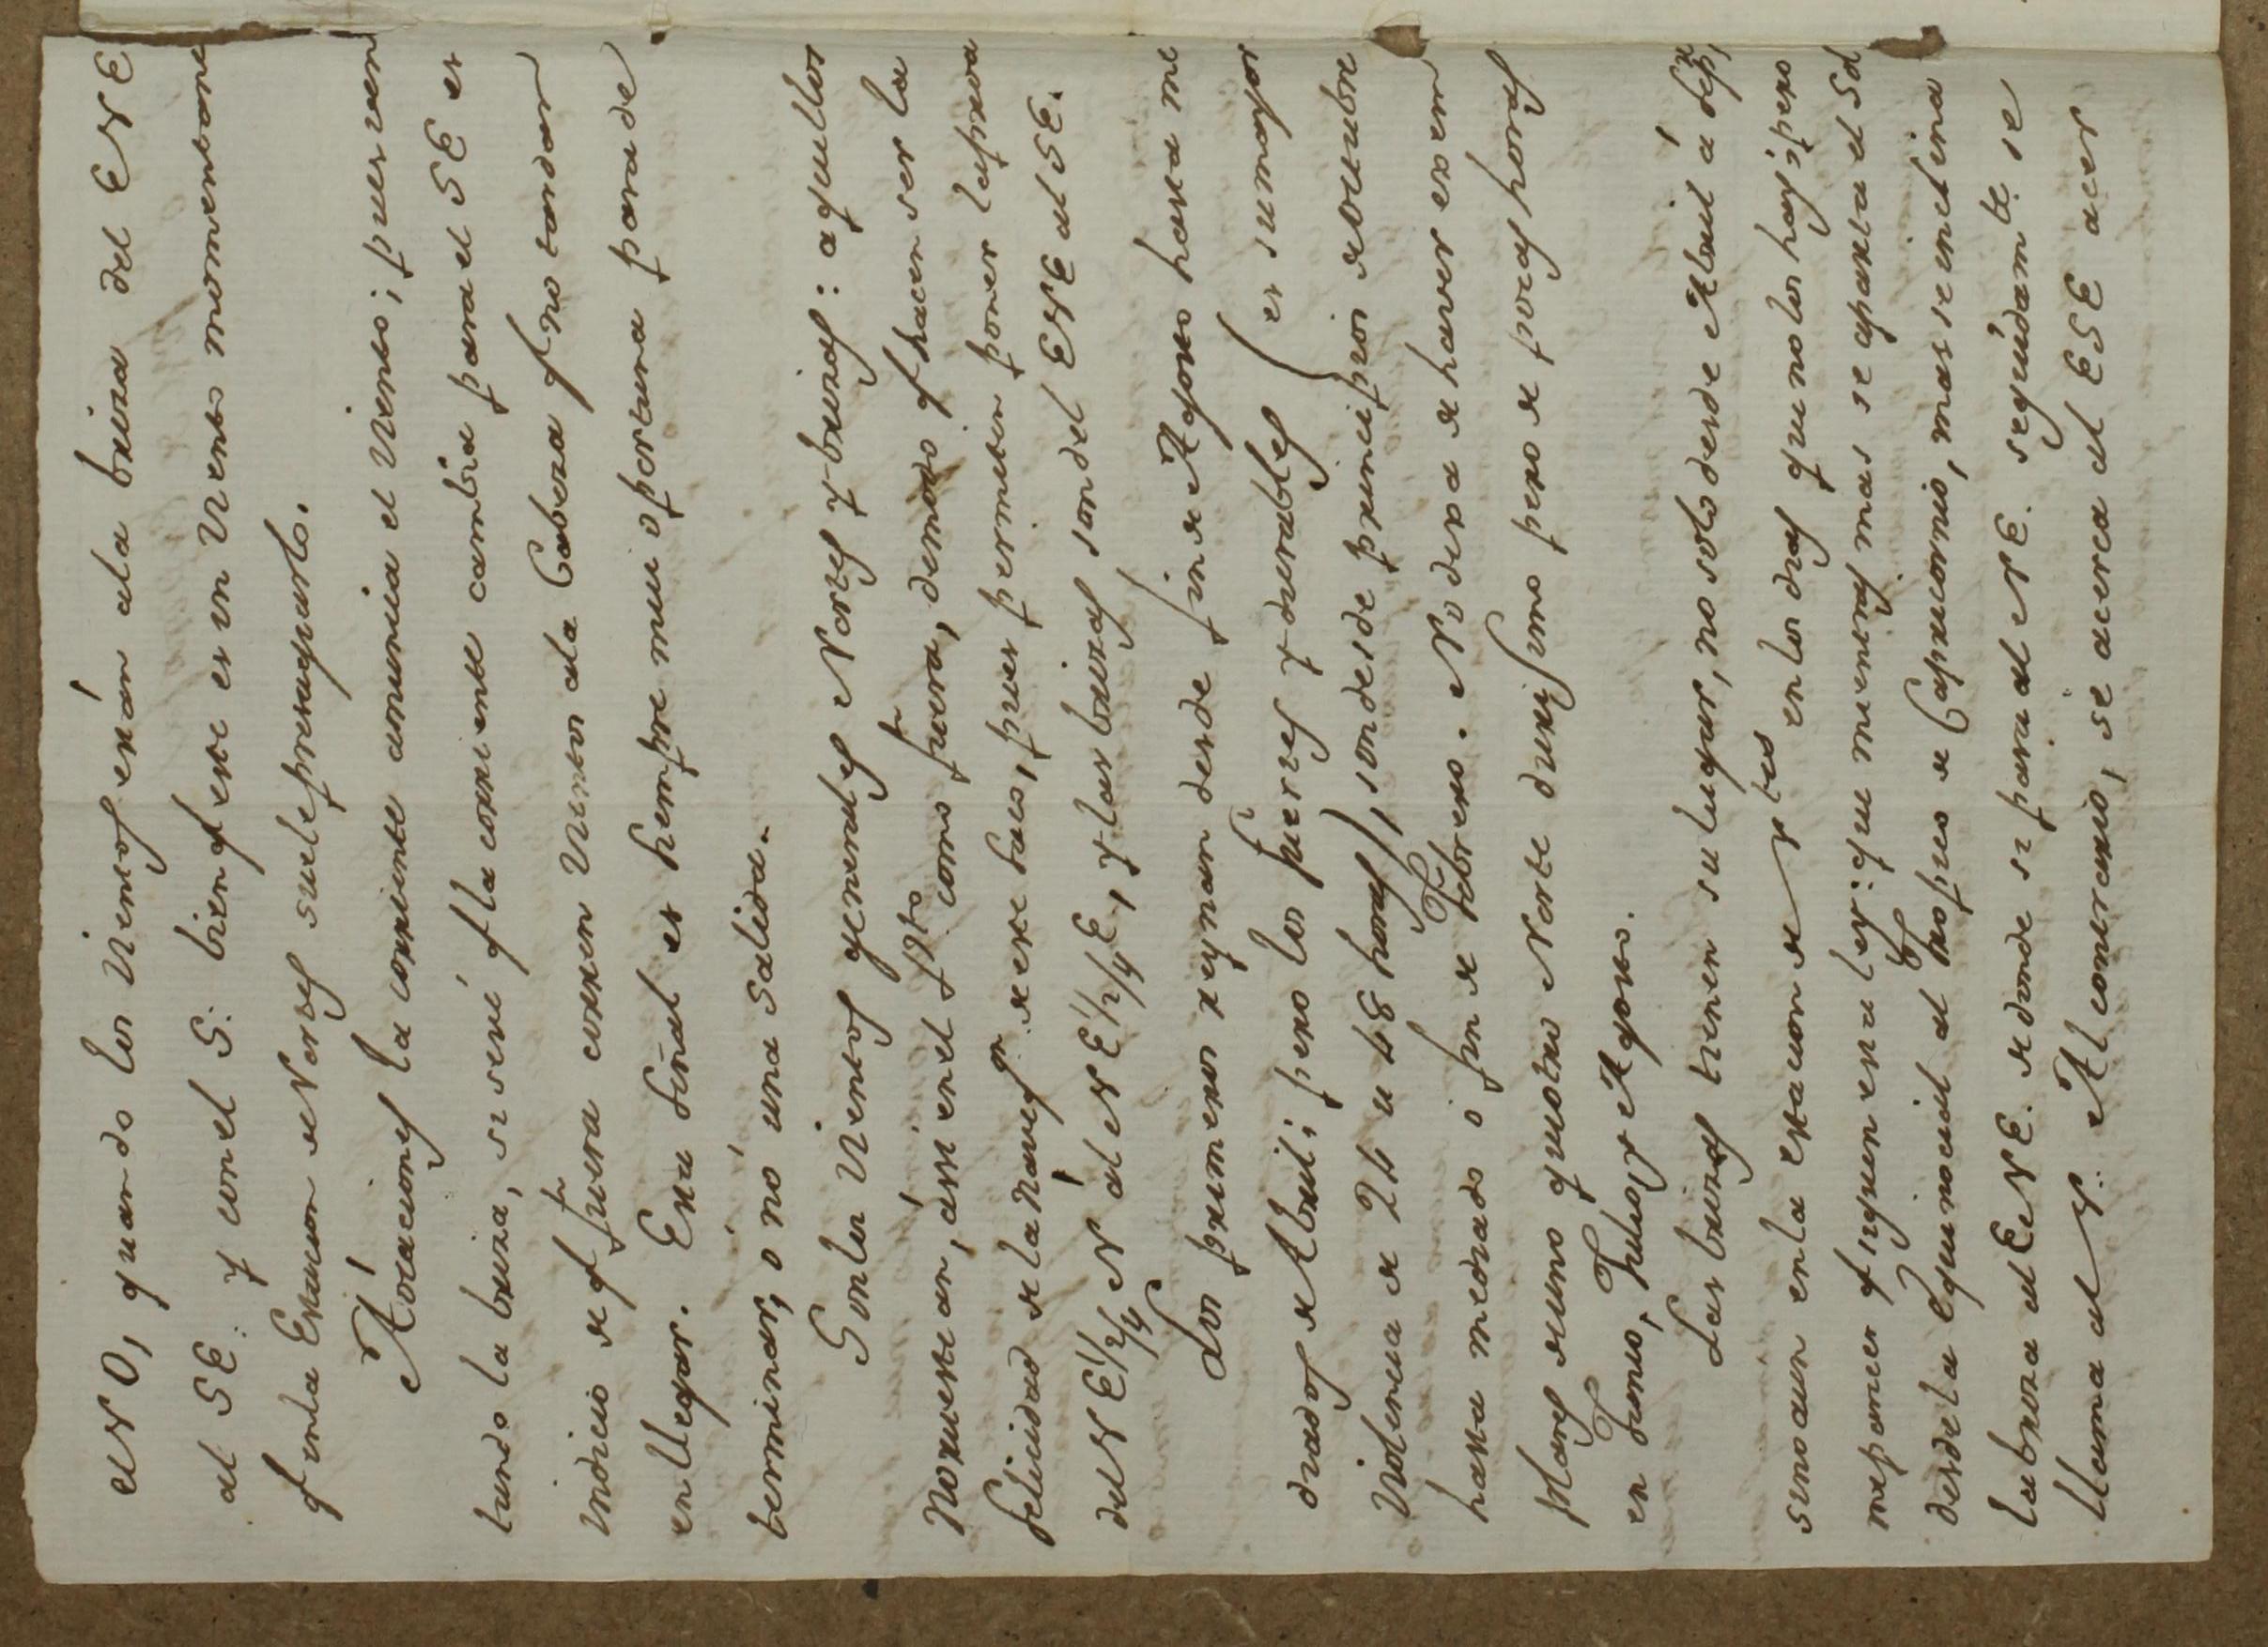 el NO, quando los Vientos están a la briza del ENE
al SE: y con el S: bien q̃ este es un Viento momentaneo
q̃ en la Estacion de Nortes suele presto
Aócaciones la corriente anuncia el Viento; pues ven
tando la briza, si sené q̃ la corriente cambia para el SE es
indicio de q̃ fuera corren Vientos de la Cabeza q̃ no tardan
en llegar. Esta señal es siempre mui oportuna para de
terminar, o nó una salida.
Son los Vientos generales Nortes y brizas: aquellos
noruestean, assi en el pto como fuera, demodo q̃ hacen ser la
felicidad de la naveg.on de este saco, pues permiten poner la proa
del NE 1/2/4 N al NE 1/2/4 E, y las brizas son del ENE al SE.
Los primeros reynan desde fin de Agosto hasta me
diados de Abril; pero los fuertes y durables (es su mayor
violencia de 24 a 48 horas), son desde principios de Octubre
hasta mediado o fin de Febrero. No dexa de haver exem
plares de uno q̃ u otro Norte durissimo pero de pocas horas
en Junio, Julio, y Agosto.
Las brizas tienen su lugar, no solo desde Abril á Sep.re
sino aun en la estacion de Ntes en los dias que no los hay; pero
me parece q̃ siguen esta ley: que mientras mas se aparta el Sol
desde la Equinocial al Tropico de Capricornio, mas se inclina
la briza al ENE. de donde se pasa al NE. seguidam.te se
llama al N: Al contrario, se acerca al ESE acer